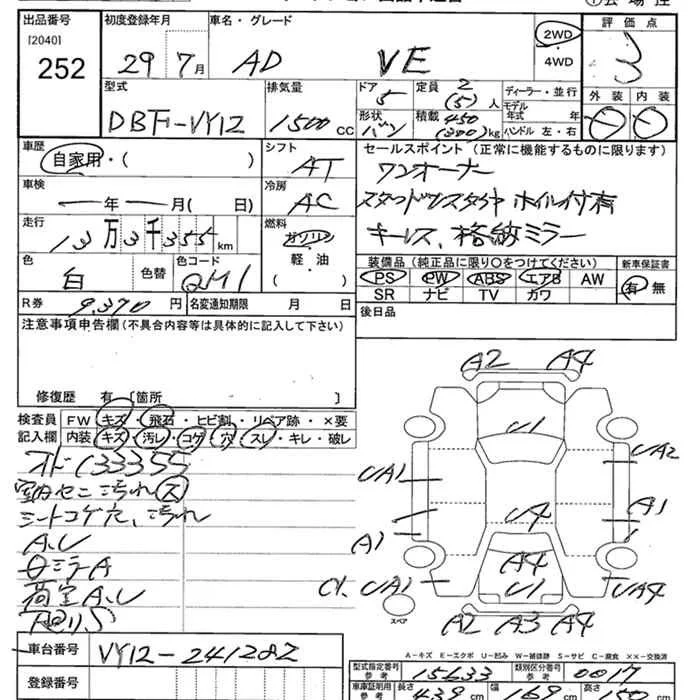 出品番号 初度登録年月 車名・グレード 評価点
[2040] 252 29年 7月 AD VE 2WD・4WD 3
型式 排気量 ドア 定員 ディーラー・並行 外装 内装
DBF-VY12 1500CC 5 2(5)人 モデル年式 年
形状 バン 積載 450(300)kg ハンドル 左・右
車歴 自家用・( ) シフト AT セールスポイント (正常に機能するものに限ります)
ワンオーナー
車検 ー年ー月( 日) 冷房 AC
スタッドレスタイヤ ホイル付有
走行 13万3千355km 燃料 ガソリン・軽・油( )
キーレス、格納ミラー
色 白 色替 色コード QM1
装備品(純正品に限り○をつけてください) 新車保証書
PS PW ABS エアB AW 有・無
SR ナビ TV カワ
R券 9,370円 名変通知期限 月 日
後日品
注意事項申告欄(不具合内容等は具体的に記入して下さい)
修復歴 有〔箇所 〕
検査員記入欄 FW キズ・飛石・ヒビ割・リペア跡・×要
内装 キズ・汚レ・コゲ・穴・スレ・キレ・破レ
オドC133355
シートコゲ穴、汚れ
A.U
荷室A.U
A2 A4
U1
UA1 UA2
A1 A1
U4
A4
C1. UA1 U1 UA4
スペア
A2 A3 A4
A-キズ E-エクボ U-凹み W-補修跡 S-サビ C-腐食 ××-交換済
車台番号 VY12-241282
登録番号
型式指定番号 参考 15633 類別区分番号 参考 0017
車庫証明用 参考 長さ 439cm 幅 169cm 高さ 150cm